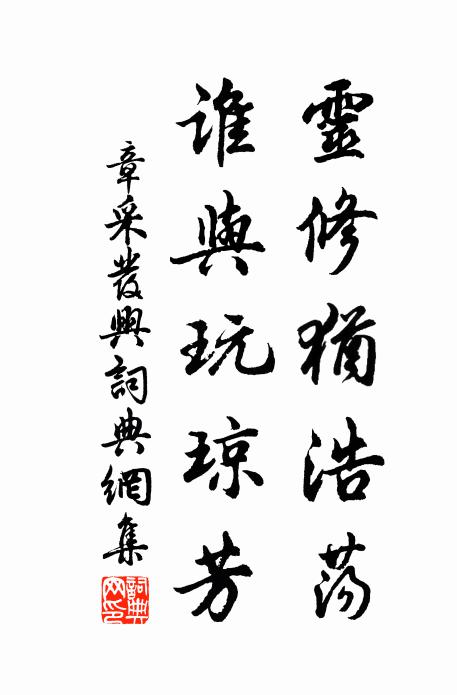 靈修猶浩蕩
誰與玩琼芳
章采發興詞典網集
詞典网印